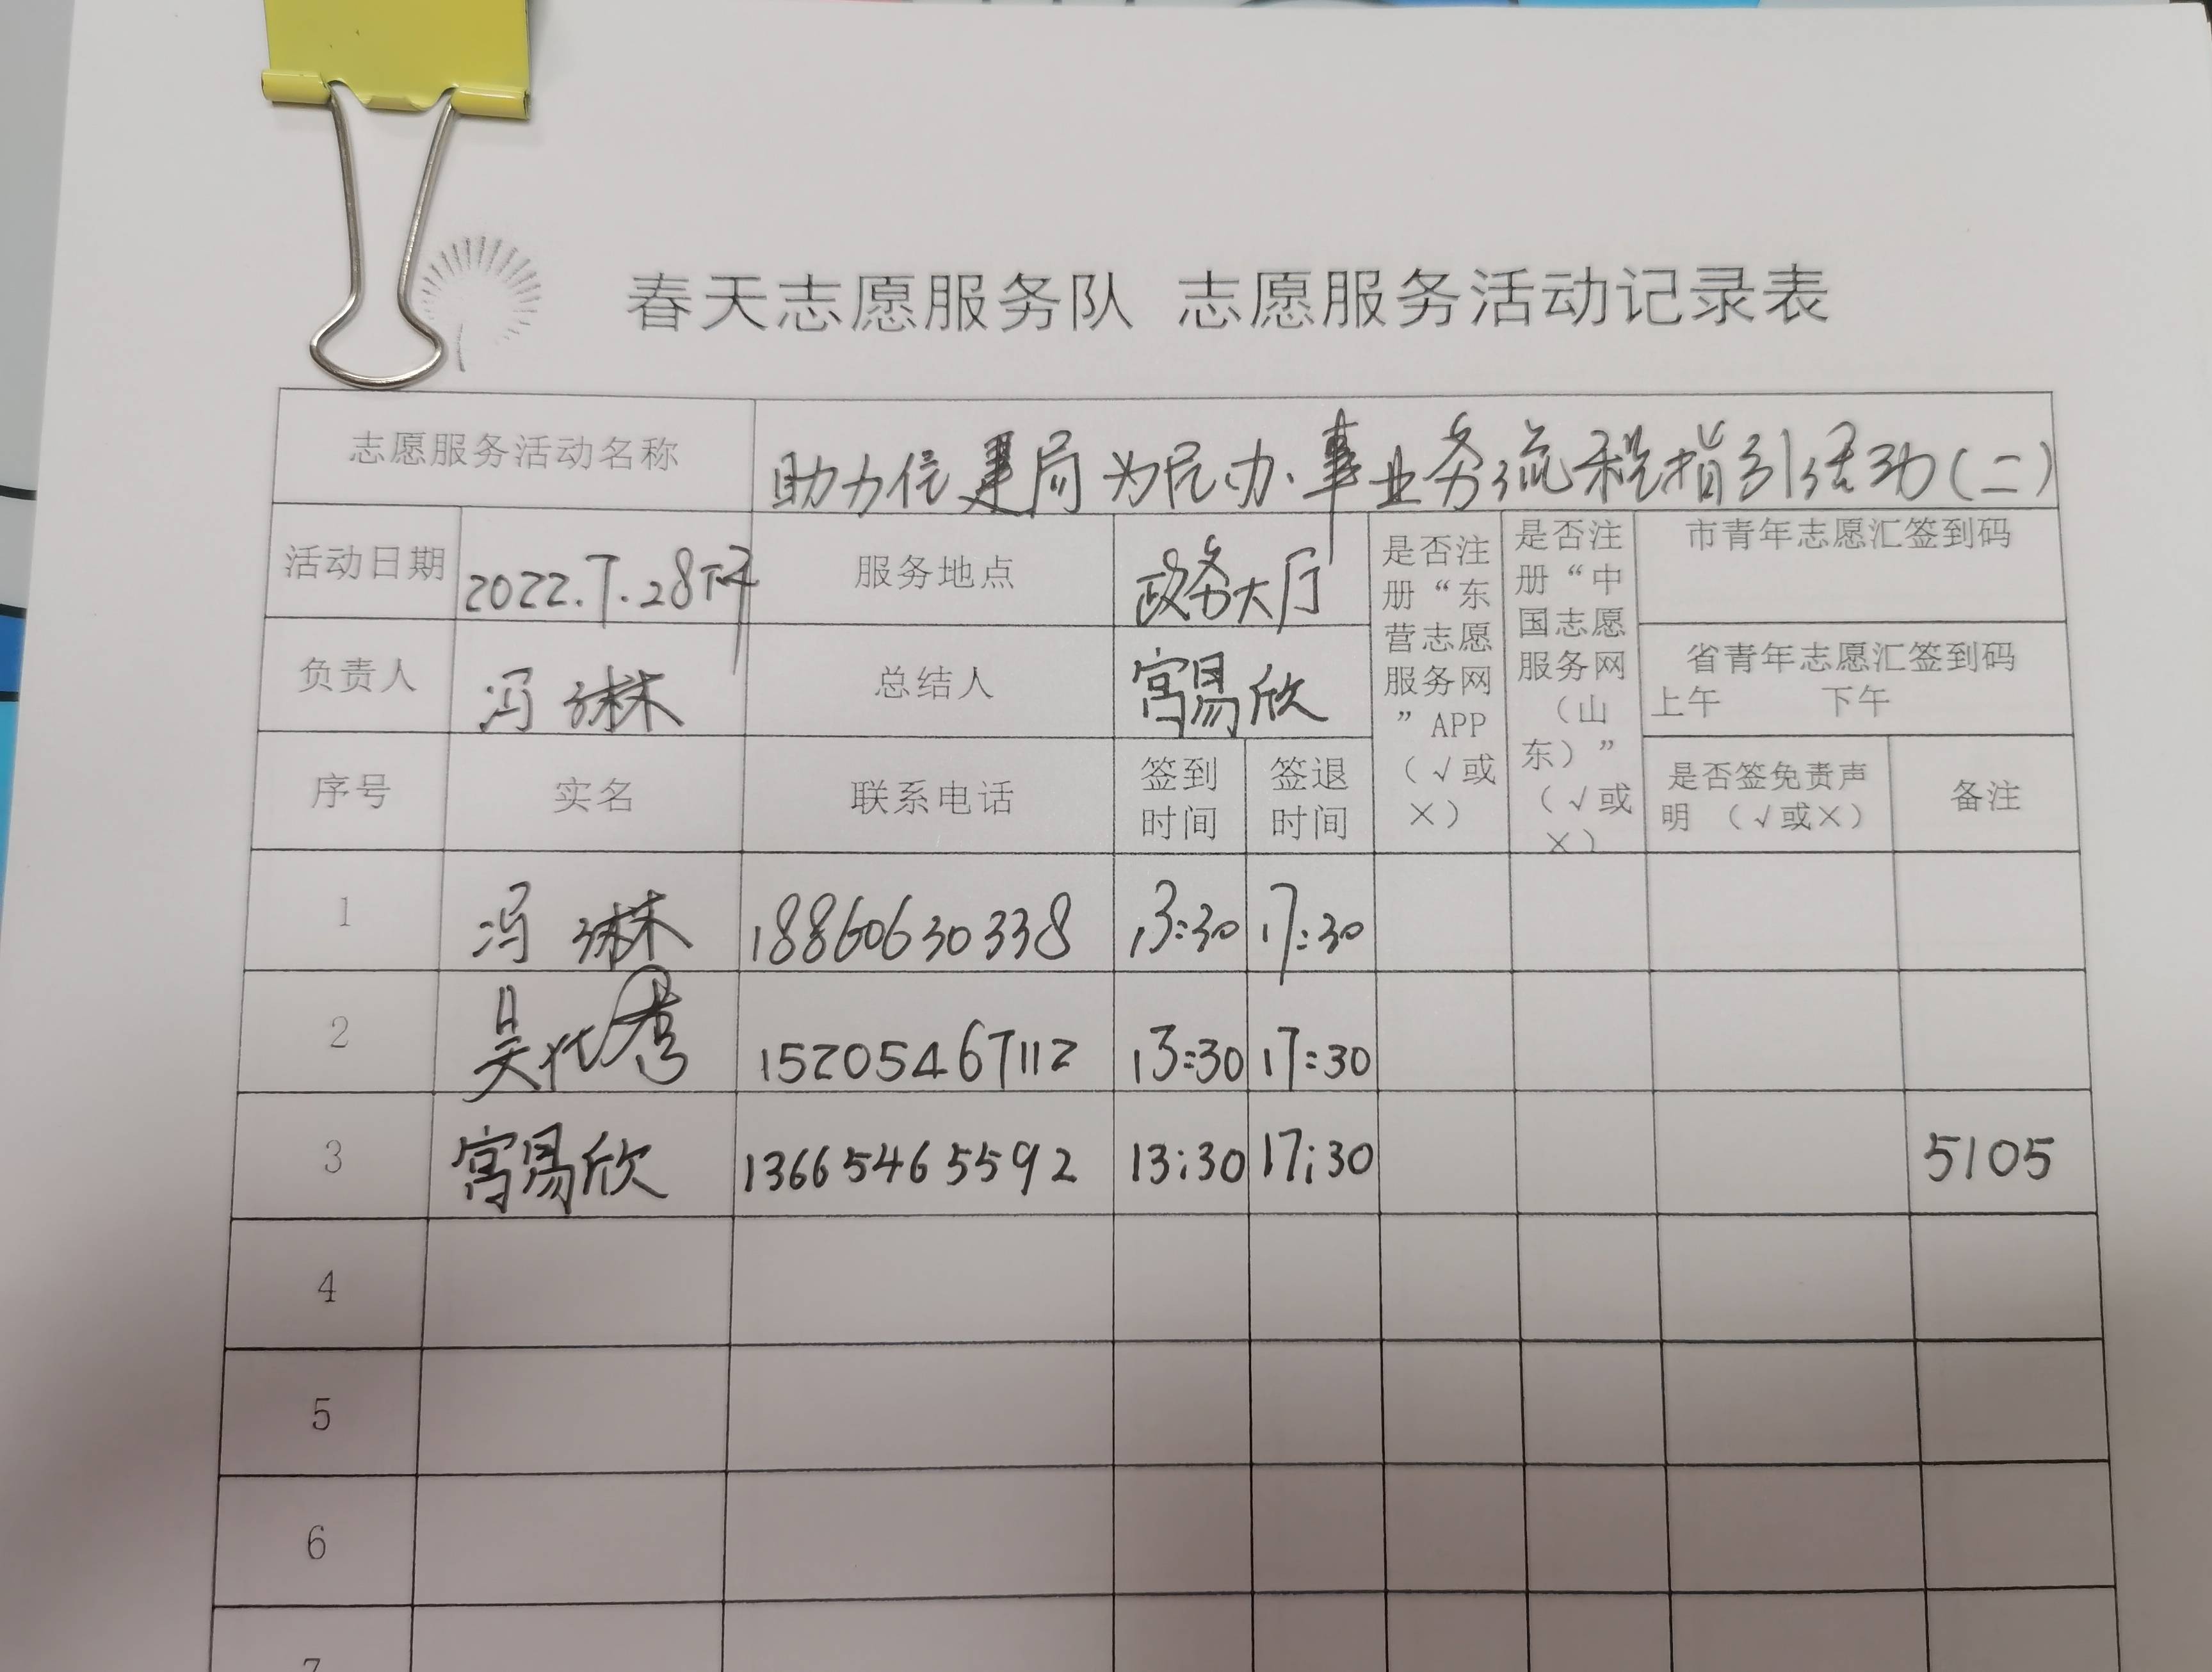 春天志愿服务队 志愿服务活动记录表
志愿服务活动名称 助力住建局为民办事业务流程指引活动(二)
活动日期 2022.7.28下午 服务地点 政务大厅
是否注册“东营志愿服务网”APP（√或×）
是否注册“中国志愿服务网（山东）”（√或×）
市青年志愿汇签到码
负责人 冯琳 总结人 宫易欣
省青年志愿汇签到码
上午 下午
序号 实名 联系电话 签到时间 签退时间 是否签免责声明（√或×） 备注
1 冯琳 18860630338 13:30 17:30
2 吴 15205467112 13:30 17:30
3 宫易欣 13665465592 13:30 17:30 5105
4
5
6
7